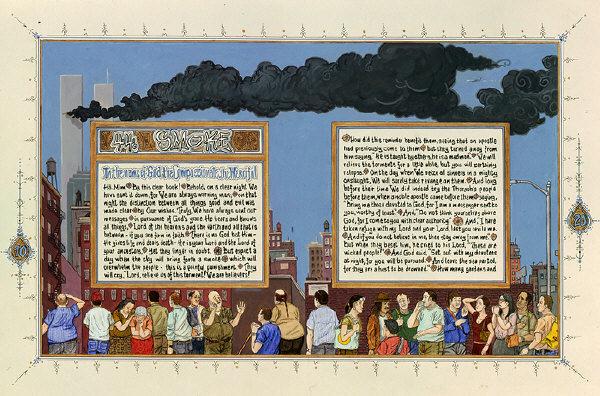 44. SMOKE
In the name of God, the Compassionate, the Merciful
Ha. Mim. By this clear book! Behold, on a clear night We
have sent it down, for We are always warning, for on that
night the distinction between all things good and evil was
made clear by Our wisdom. Truly, We have always sent Our
messages in pursuance of God's grace. He hears and knows
all things, Lord of the heavens and the earth and all that is
between - if you are firm in faith. There is no God but Him -
He gives life and deals death - He is your Lord and the Lord of
your ancestors. Yet they linger in doubt. But expect a
day when the sky will bring forth a smoke which will
overwhelm the people - this is a painful punishment. They
will cry, "Lord, relieve us of this torment! We are believers!"
How did this reminder benefit them, seeing that an apostle
had previously come to them but they turned away from
him saying, "He is taught by others, he is a madman." We will
relieve the torments for a little while, but you will certainly
relapse. On the day when We seize all sinners in a mighty
onslaught, We will surely take revenge on them. And long
before their time We did indeed try the Pharaoh's people
before them, when a noble apostle came before them saying,
"Bring me those devoted to God, for I am a messenger sent to
you, worthy of trust." And, "Do not think yourselves above
God, for I come to you with clear authority." And, "I have
taken refuge with my Lord and your Lord lest you injure me.
And if you do not believe in me, then stay away from me."
But when they beset him, he cried to his Lord, "These are
wicked people!" And God said, "Set out with my devotees
at night, for you will be pursued. And leave the sea parted,
for they are a host to be drowned." How many gardens and